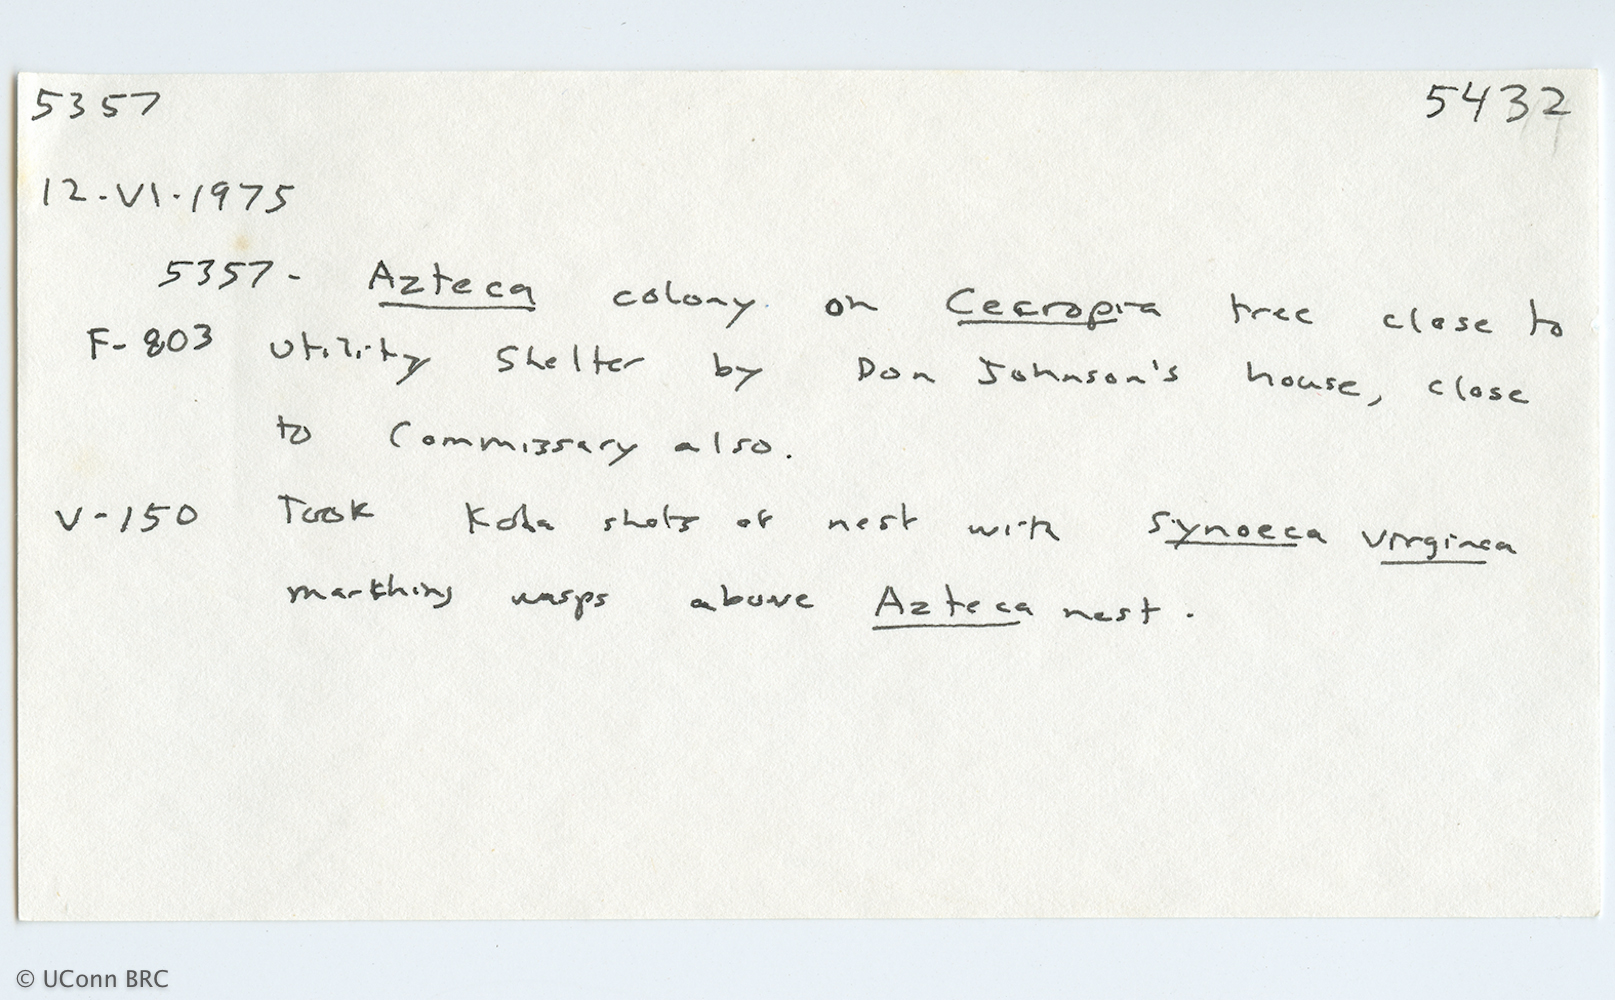 5357 5432
12-VI-1975
5357- Azteca colony on Cecropia tree close to
F-803 utility shelter by Don Johnson's house, close
to Commissary also.
V-150 Took Koda shots of nest with Synoeca virginea
marching wasps above Azteca nest.
© UConn BRC